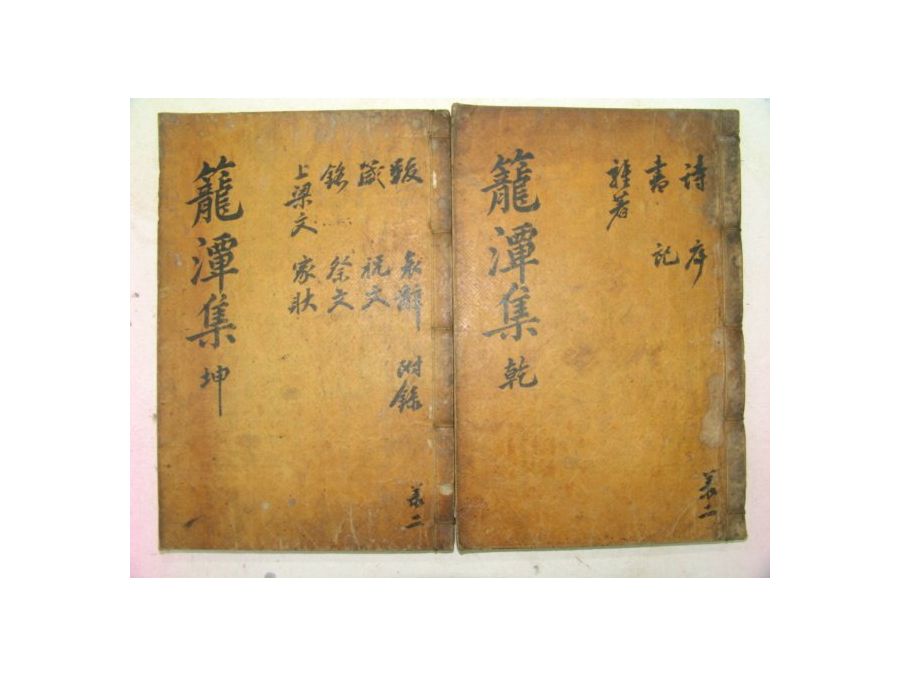 共二
詩 序
書 記
雜著
籠潭集 乾
共二
跋 哀辭 附錄
箴 祝文
銘 祭文
上梁文 家狀
籠潭集 坤